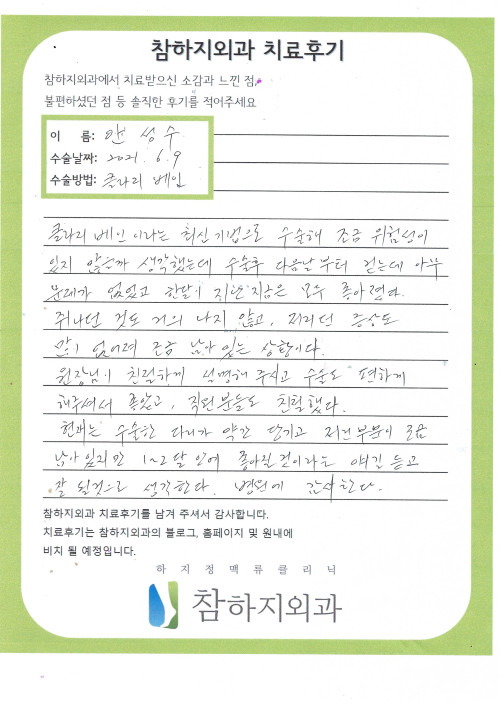 참하지외과 치료후기
참하지외과에서 치료받으신 소감과 느낀 점,
불편하셨던 점 등 솔직한 후기를 적어주세요
이 름: 안 성 수
수술날짜: 2021. 6. 9
수술방법: 클라리 베인
클라리 베인 이라는 최신 기법으로 수술해 조금 위험성이
있지 않은까 생각했는데 수술후 다음날 부터 걷는데 아무
문제가 없었고 한달이 지난 지금은 모두 좋아졌다.
쥐나던 것도 거의 나지 않고, 저리던 증상도
많이 없어져 조금 남아 있는 상황이다.
원장님이 친절하게 설명해 주시고 수술도 편하게
해주셔서 좋았고, 직원분들도 친절했다.
현재는 수술한 다리가 약간 당기고 저린부분이 조금
남아 있지만 1~2달 안에 좋아질것이라는 얘길 듣고
잘 될것으로 생각한다. 병원에 감사한다.
참하지외과 치료후기를 남겨 주셔서 감사합니다.
치료후기는 참하지외과의 블로그, 홈페이지 및 원내에
비치 될 예정입니다.
하지정맥류클리닉
참하지외과